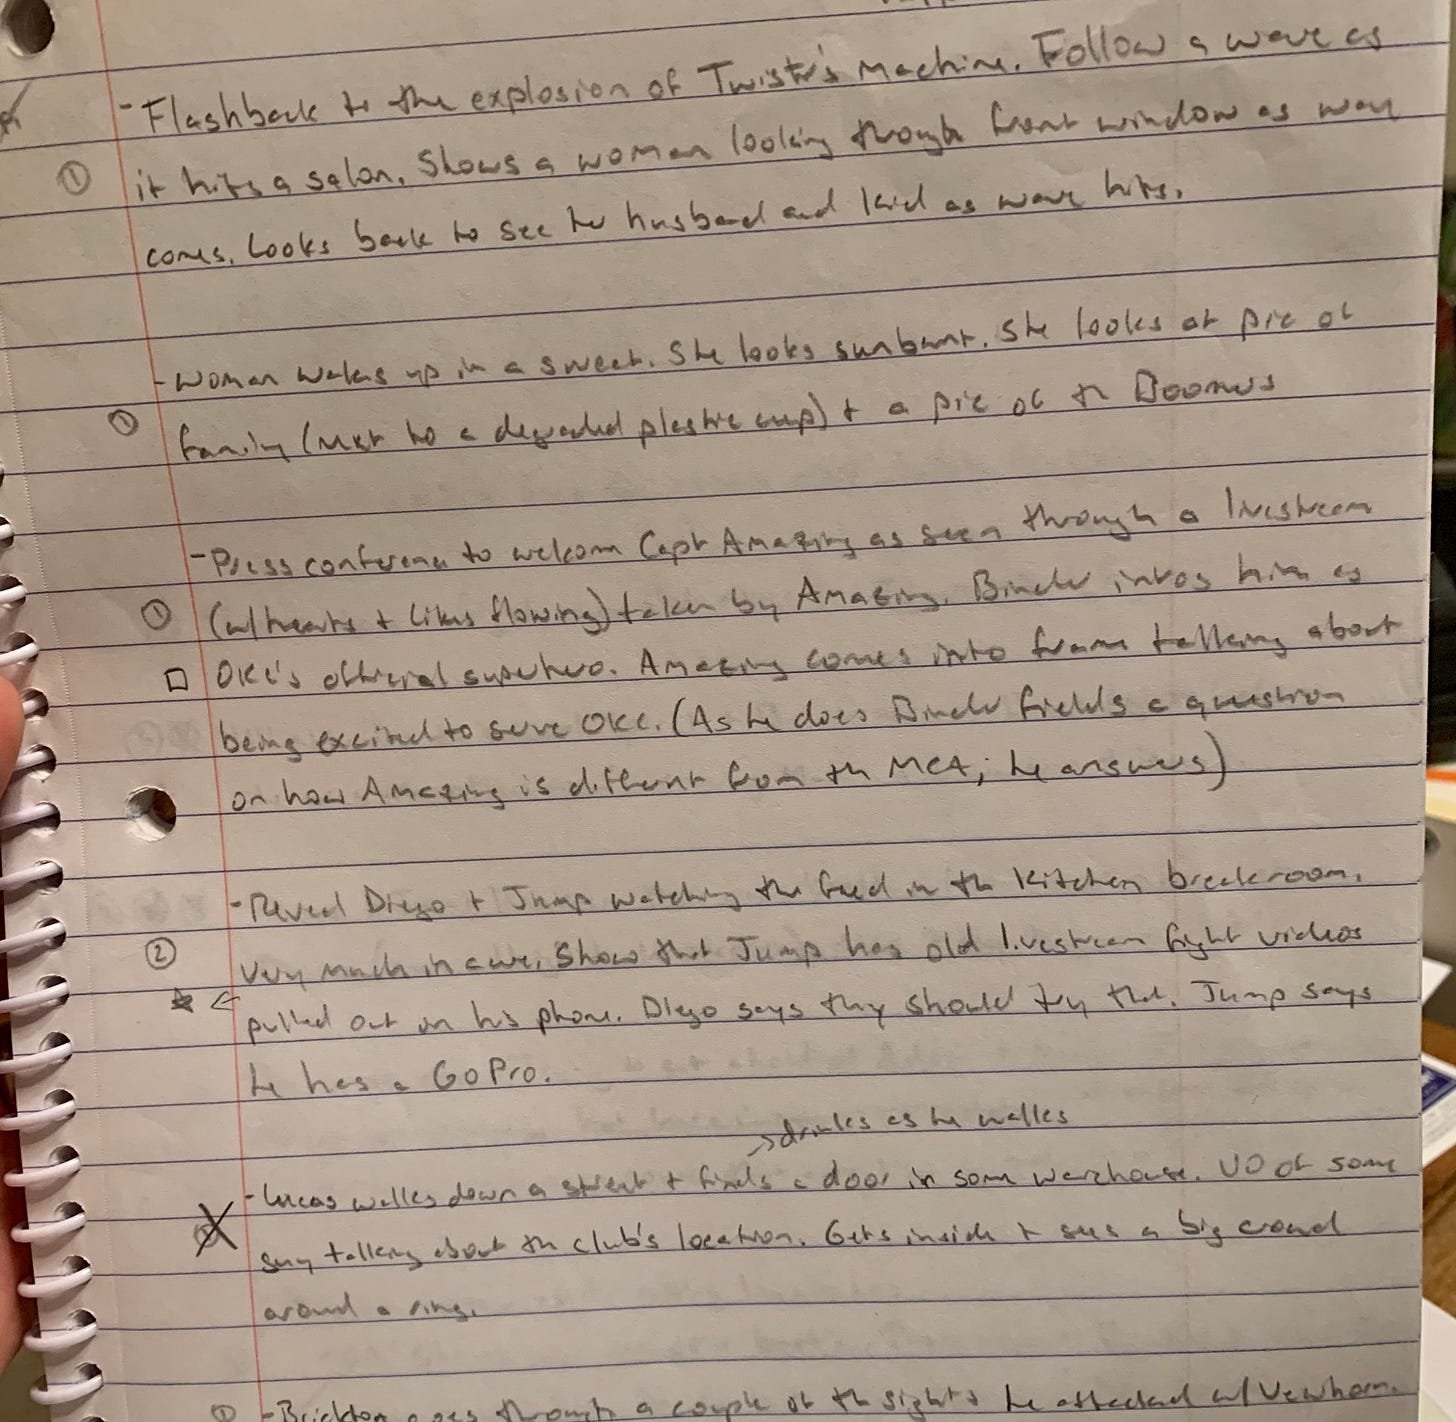 - Flashback to the explosion of Twister's Machine. Follow a wave as
① it hits a salon. Shows a woman looking through front window as wave
comes. Looks back to see her husband and kid as wave hits.
- Woman wakes up in a sweat. She looks sunburnt. She looks at pic of
① family (next to a degraded plastic cup) + a pic of the Boomers
- Press conference to welcom Capt Amazing as seen through a livestream
① (w/ hearts + likes flowing) taken by Amazing. Binder intros him as
□ OKC's official superhero. Amazing comes into frame talking about
being excited to serve OKC. (As he does Binder fields a question
on how Amazing is different from the MCA; he answers)
- Reveal Diego + Jump watching the feed in the kitchen breakroom.
② very much in awe. Show that Jump has old livestream fight videos
pulled out on his phone. Diego says they should try that. Jump says
he has a GoPro.
→ drinks as he walks
- Lucas walks down a street + finds a door in some warehouse. VO of some
guy talking about the club's location. Gets inside + sees a big crowd
around a ring.
① - Brickton goes through a couple of the sights he attacked w/